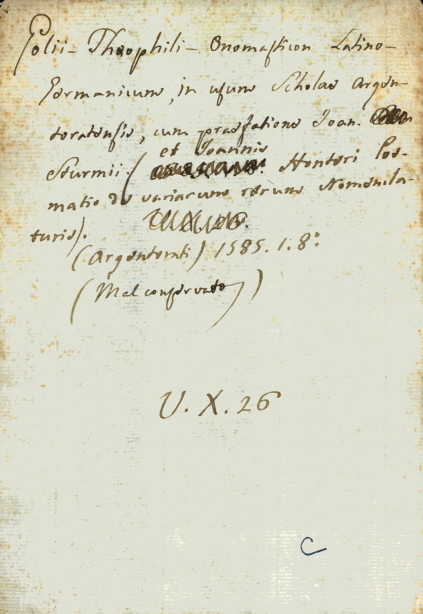 Golii - Theophili - Onomasticon Latino-
Germanicum, in usum Scholae Argen-
toratensis, cum praefatione Joan.
et Joannis
Sturmii. ( Honteri Cos-
matio de variarum rerum Nomencla-
turis).
(Argentorati) 1585. 1. 8º.
(Mal conservato)
U. X. 26
C